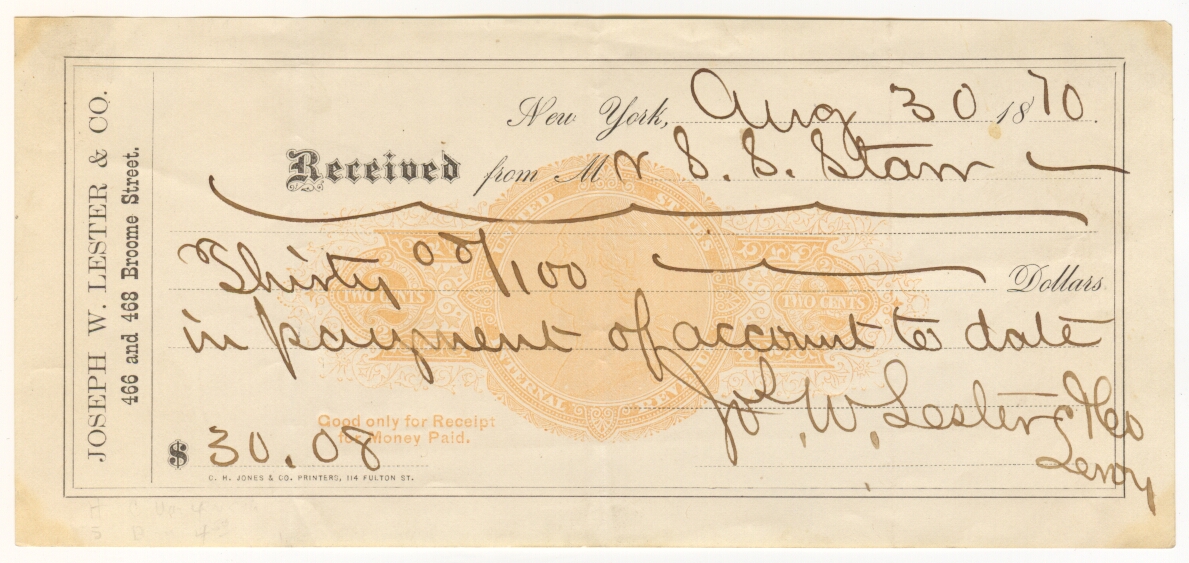 JOSEPH W. LESTER & CO.
466 and 468 Broome Street.
New York, Aug 30 1870.
Received from Mr S. S. Starr
UNITED STATES
INTERNAL REVENUE
TWO CENTS TWO CENTS
Thirty 08/100 Dollars
in payment of account to date
Jos. W. Lester & Co
Good only for Receipt
for Money Paid.
$ 30.08
C. H. JONES & CO. PRINTERS, 114 FULTON ST.